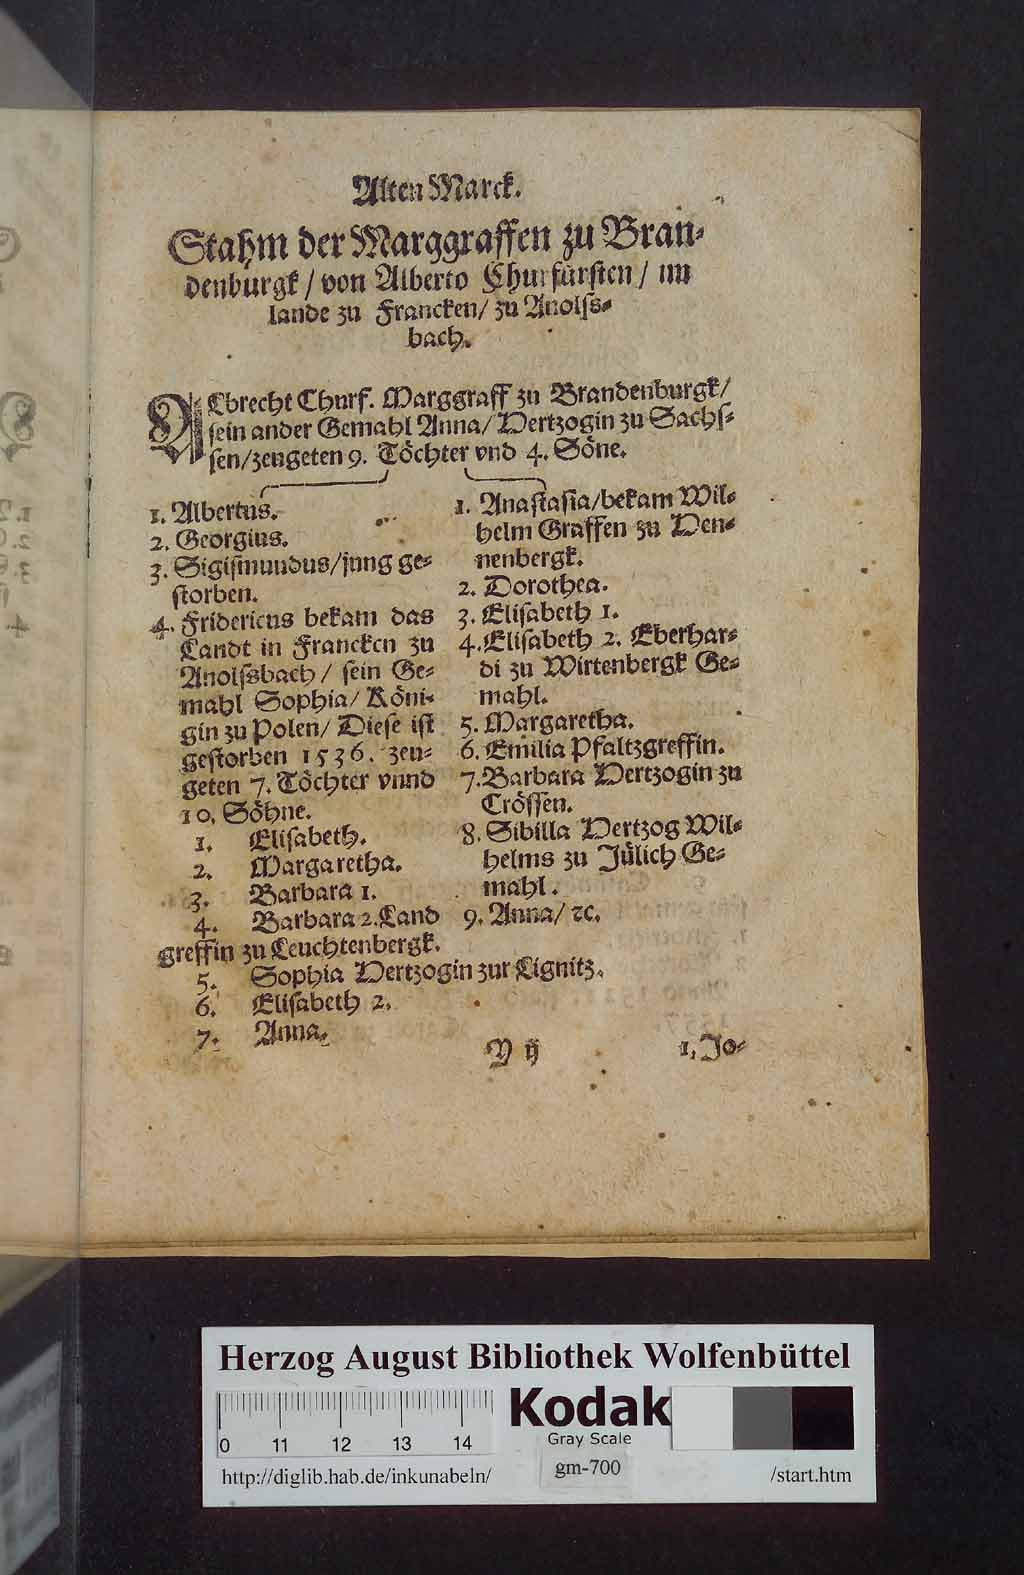 Alten Marck.
Stahm der Marggraffen zu Bran-
denburgk / von Alberto Churfürsten / im
lande zu Francken / zu Anolss-
bach.
ALbrecht Churf. Marggraff zu Brandenburgk /
sein ander Gemahl Anna / Hertzogin zu Sachs-
sen / zeugeten 9. Töchter vnd 4. Söne.
1. Albertus.
2. Georgius.
3. Sigismundus / jung ge-
storben.
4. Fridericus bekam das
Landt in Francken zu
Anolssbach / sein Ge-
mahl Sophia / Köni-
gin zu Polen / Diese ist
gestorben 1536. zeu-
geten 7. Töchter vnnd
10. Söhne.
1. Elisabeth.
2. Margaretha.
3. Barbara 1.
4. Barbara 2. Land
greffin zu Leuchtenbergk.
5. Sophia Hertzogin zur Lignitz.
6. Elisabeth 2.
7. Anna.
1. Anastasia / bekam Wil-
helm Graffen zu Hen-
nenbergk.
2. Dorothea.
3. Elisabeth 1.
4. Elisabeth 2. Eberhar-
di zu Wirtenbergk Ge-
mahl.
5. Margaretha.
6. Emilia Pfaltzgreffin.
7. Barbara Hertzogin zu
Crössen.
8. Sibilla Hertzog Wil-
helms zu Jülich Ge-
mahl.
9. Anna / ꝛc.
Y ij
1. Jo-
Herzog August Bibliothek Wolfenbüttel
0 11 12 13 14
Kodak
Gray Scale
http://diglib.hab.de/inkunabeln/
gm-700
/start.htm